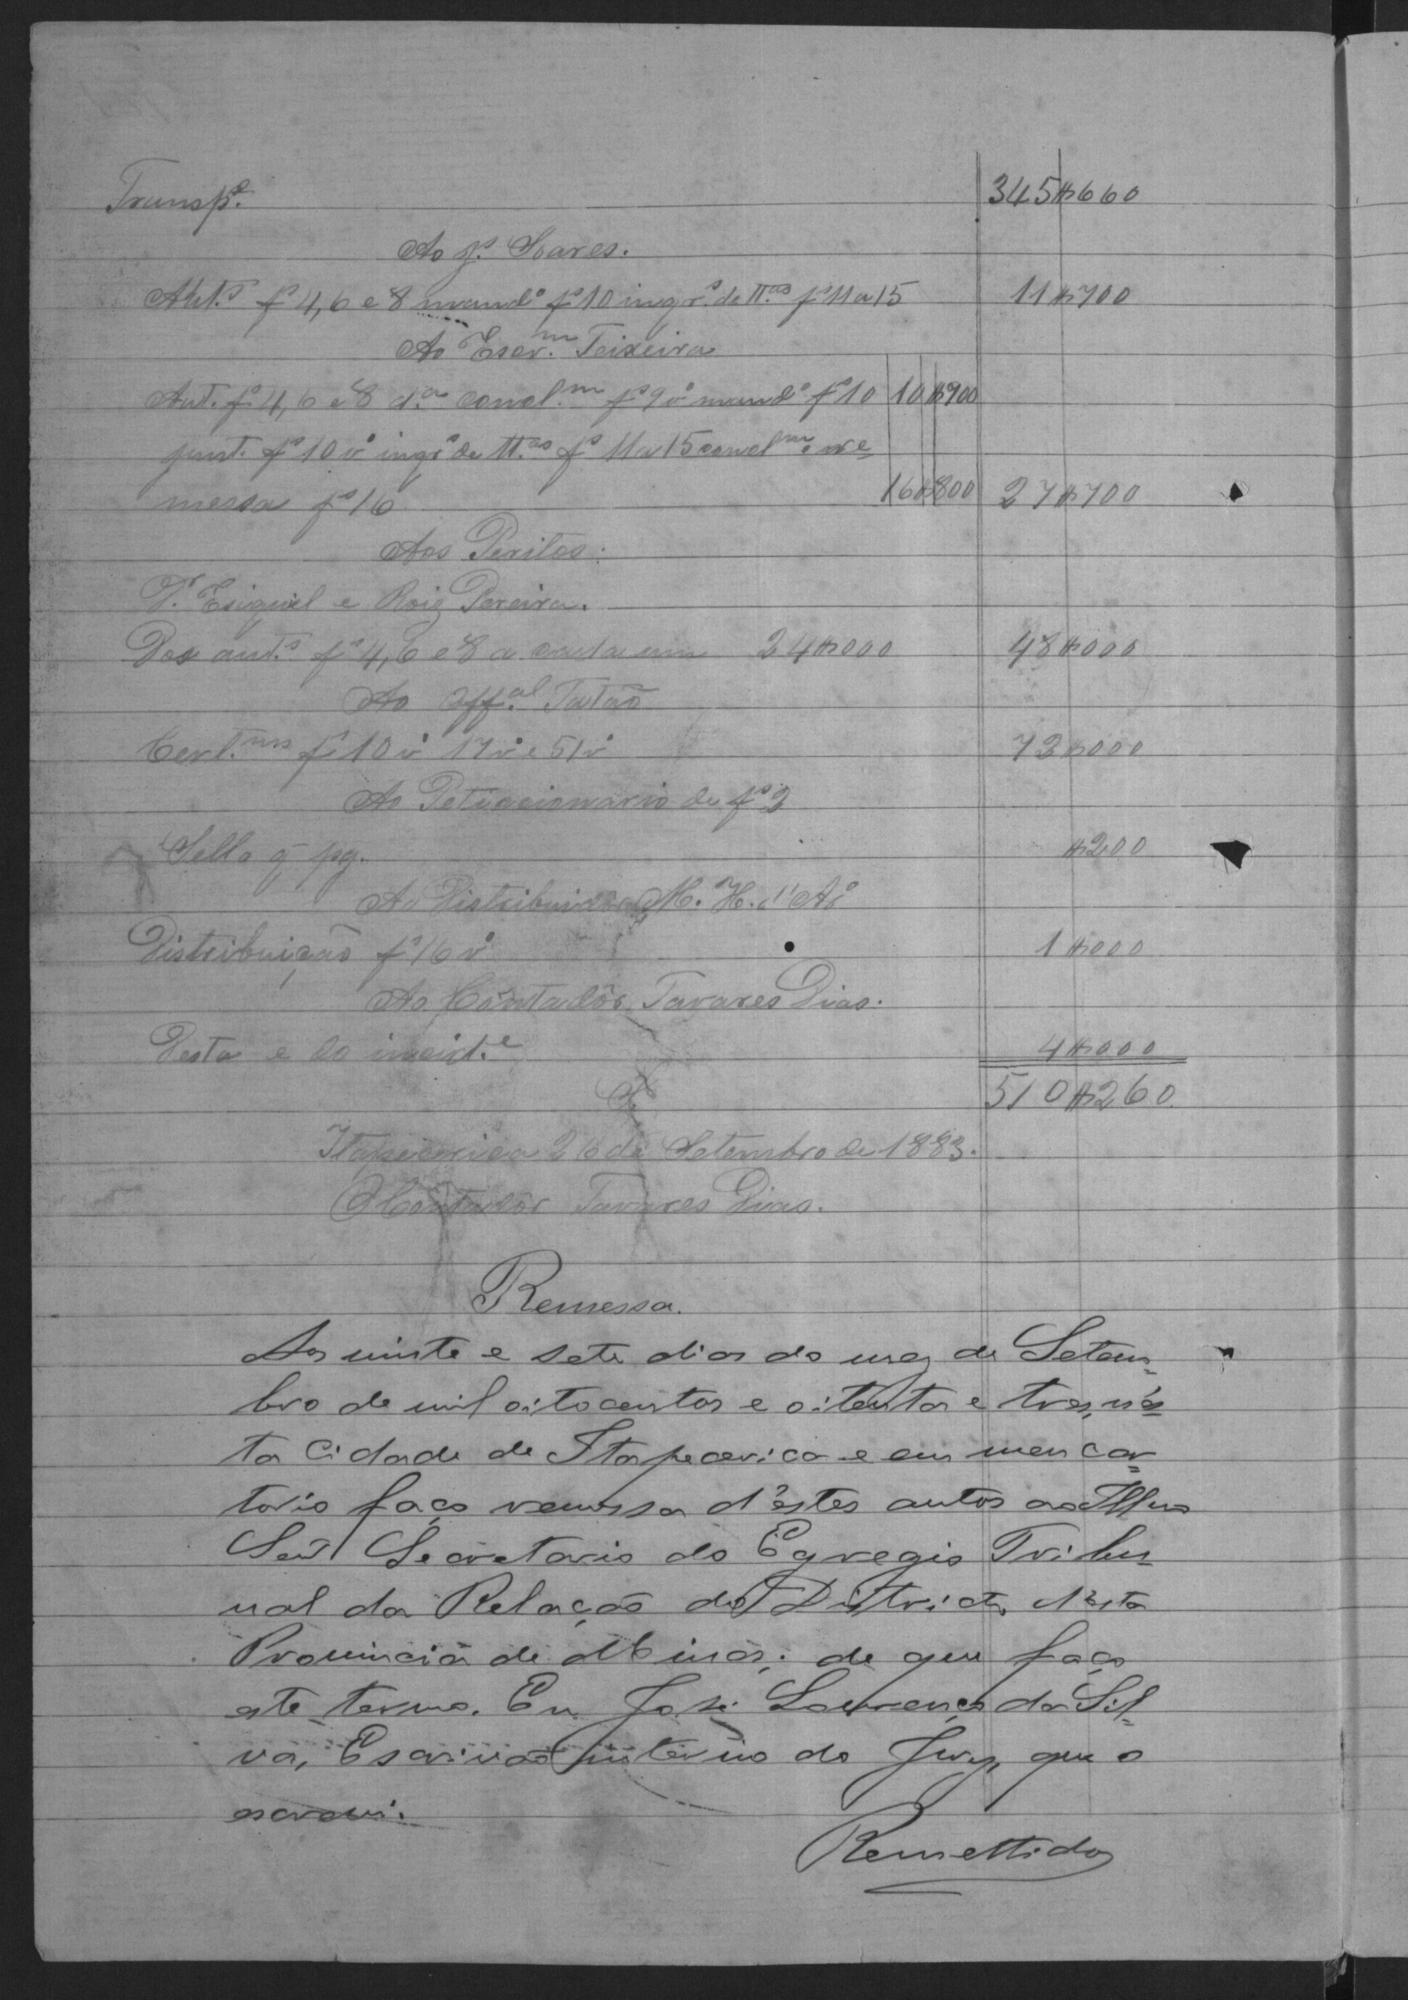 Transp.e 345$660
Ao J.s Soares.
Aut.s fs 4, 6 e 8 mand.o fs 10 inqr.o de tt.as fs 11 a 15 11$700
Ao Escr.m Teixeira
Aut. fs 4, 6 e 8 d.a concl.m fs 9 vo mand.o fs 10 10$900
junt. fs 10 vo inqr.o de tt.as fs 11 a 15 concl.m e re=
messa fs 16 16$800 27$700
Aos Peritos:
Dr. Esiquiel e Roiz Pereira.
Dos aut.s fs 4, 6 e 8 a cada um 24$000 48$000
Ao Off.al Tatão
Cert.ms fs 10 vo 17 vo e 51 vo 72$000
Ao Peticcionario de fs 2
Sello q pg. $200
Ao Distribuidor M. H. d'A.o
Distribuição fs 16 vo 1$000
Ao Contadôr Tavares Dias.
Desta e do incid.e 4$000
510$260
Itapecerica 26 de Setembro de 1883.
O Contadôr Tavares Dias.
Remessa.
Aos vinte e sete dias do mez de Setem=
bro de mil oitocentos e oitenta e tres, nes=
ta Cidade de Itapecerica e em meu car=
torio faço remessa d'estes autos ao Illmo
Senr Secretario do Egregio Tribu=
nal da Relação do Districto d'esta
Provincia de Minas; de que faço
este termo. Eu José Lourenço da Sil=
va, Escrivão interino do Jury, que o
escrevi.
Remettidos